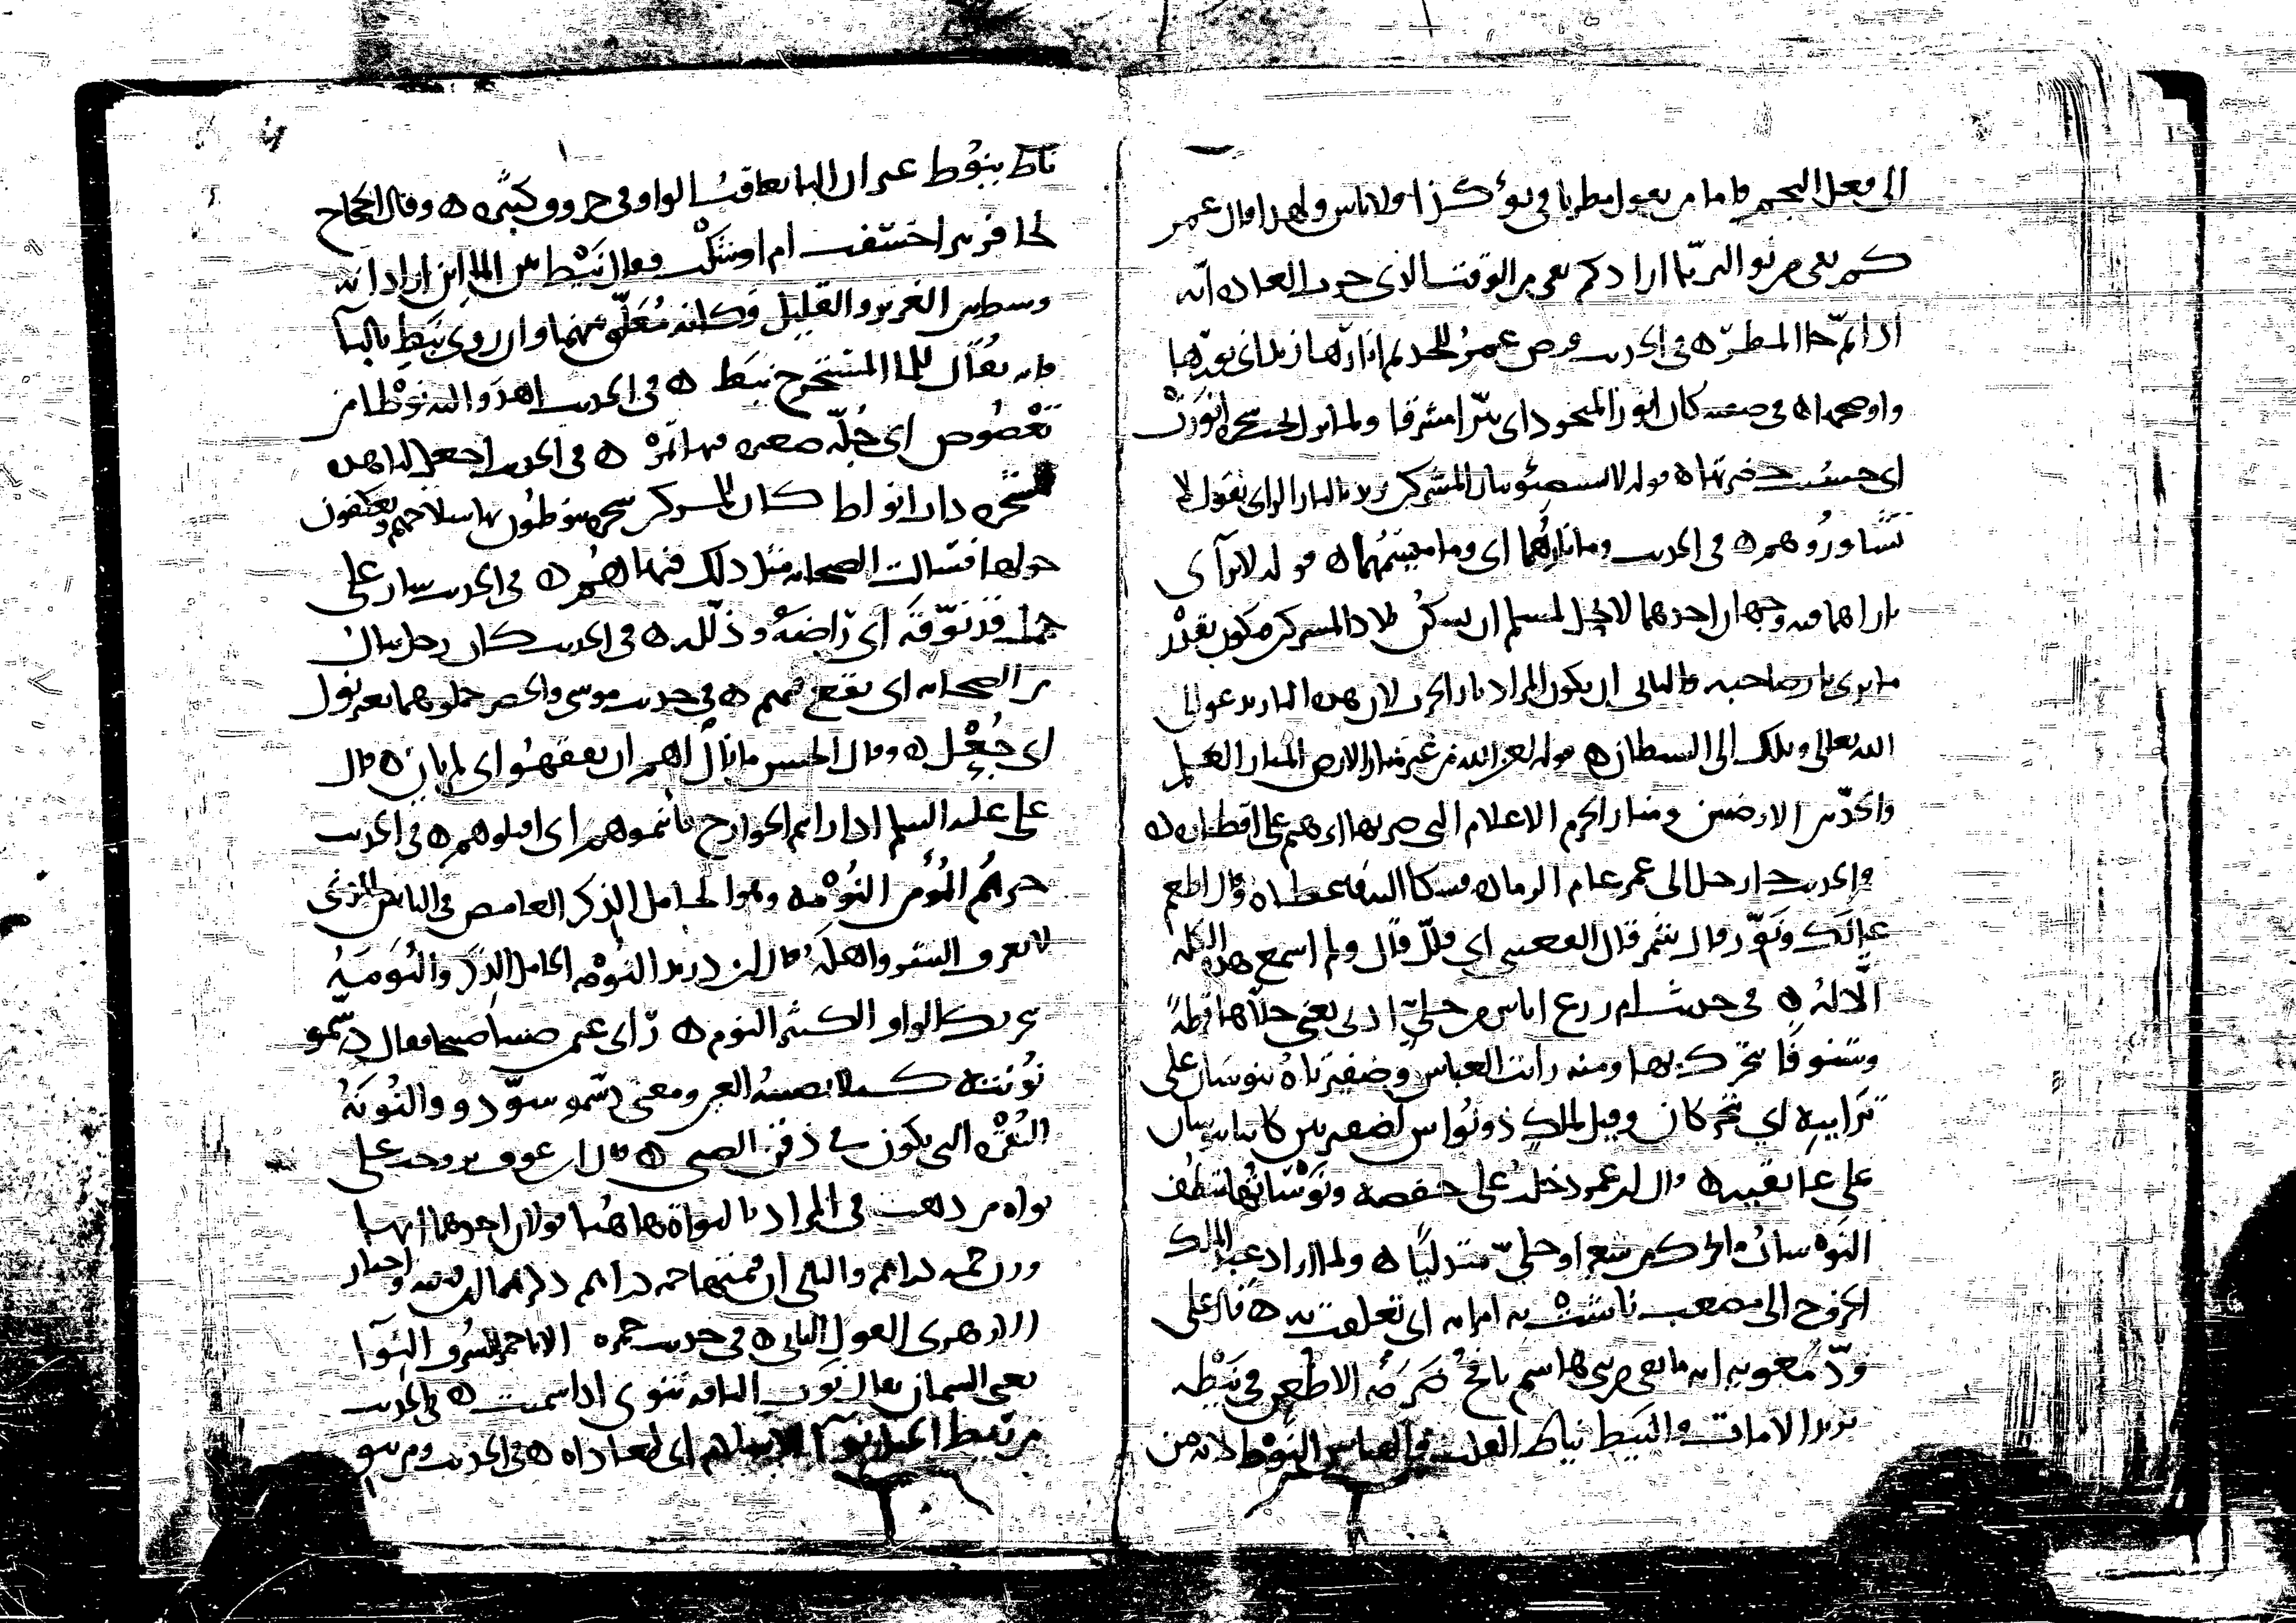 الى فعل النجم فاما من يقول مطرنا في نوء كذا فلا باس ولهذا قال عمر
كم بقي من نوء الثريا اراد كم بقي من الوقت الذي جرت العادة انه
اذا تم جا المطر ه في الحديث فرض عمر للجد ثم انارها زيد اي نورها
واوضحها ه في صفته كان انور المتجرد اي نيرا مشرقا ولما نزل تحت شجرة انورت
اي حسنت خضرتها ه قوله لا تستضئوا بنار المشركين اي لا تشاوروهم
تشاوروهم ه في الحديث وما ناراهما اي وما سمتهما ه قوله لا تراأى
ناراهما فيه وجهان احدهما لا يحل لمسلم ان يسكن بلاد المشركين فيكون بقدر
ما يرى نار صاحبه والثاني ان يكون المراد نار الحرب لان هذه النار تدعو الى
الله تعالى وتلك الى الشيطان ه قوله لعن الله من غير منار الارض المنار العلم
والحد بين الارضين ومنار الحرم الاعلام التي ضربها ابرهيم على اقطاره ه
في الحديث جا رجل الى عمر عام الرمادة فشكا اليه فاعطاه وقال اطعم
عيالك ونور قال شمر قال القعنبي اي قلل قال ولم اسمع هذه الكلمة
الا له ه في حديث ام زرع اناس من حلي اذني يعني حلاها قرطة
وشنوفا تتحرك بها ومنه رايت العباس وضفيرتاه تنوسان على
ترايبه اي تتحركان وقيل لملك ذو نواس لضفيرتين كانتا تنوسان
على عاتقيه ه قال ابن عمر دخلت على حفصة ونوساتها تنطف
النوسات ما تحرك من شعر او حلي متدليا ه ولما اراد عبد الملك
الخروج الى مصعب ناشت به امراته اي تعلقت به ه قال علي
ود معوية انه ما بقي من بني هاشم نافخ ضرمة الا طعن في نيطه
يريد الا مات والنيط نياط القلب والقياس النوط لانه من
ناط ينوط غير ان اليا تعاقب الواو في حروف كثيرة ه وقال الحجاج
لحافر بير اخسفت ام اوشلت فقال نيط بين الماين اراد انه
وسط بين الغزير والقليل فكانه معلق بينهما وان روي نبط بالبا
فانه يقال للما المستخرج نبط ه في الحديث اهدوا اليه نوطا من
تعضوض اي جلة صغيرة فيها تمر ه في الحديث اجعل لنا هذه
الشجرة ذات انواط كان للمشركين شجرة ينوطون بها سلاحهم ويعكفون
حولها فسالت الصحابة مثل ذلك فنهاهم ه في الحديث سار على
جمل قد نوقه اي راضه وذلله ه في الحديث كان رجل ينال
من الصحابة اي يقع فيهم ه في حديث موسى والخضر حملوهما بغير نول
اي جعل ه وقال الحسن ما نال لهم ان يفقهوا اي لم يان ه قال
علي عليه السلم اذا رايتم الخوارج فانيموهم اي اقتلوهم ه في الحديث
خيركم المؤمن النومة وهو الخامل الذكر الغامض في الناس الذي
لا يعرف الشر واهله قال ابن دريد النومة الخامل الذكر والنومة
بتحريك الواو الكثير النوم ه راى عثمن صبيا صبيحا فقال دسموا
نونته كيلا تصيبه العين ومعنى دسموا سودوا والنونة
النقرة التي تكون في ذقن الصبي ه قال ابن عوف تزوجت على
نواة من ذهب في المراد بالنواة هاهنا قولان احدهما انها
وزن خمسة دراهم والثاني ان قيمتها خمسة دراهم ذكرهما ابن قتيبة واختار
الازهري القول الثاني ه في حديث حمزة الا يا حمز للشرف النوا
يعني السمان يقال نوت الناقة تنوي اذا سمنت ه في الحديث
من ربط الخيل نوا لاهل الاسلام اي معاداة ه في الحديث ومن ينو